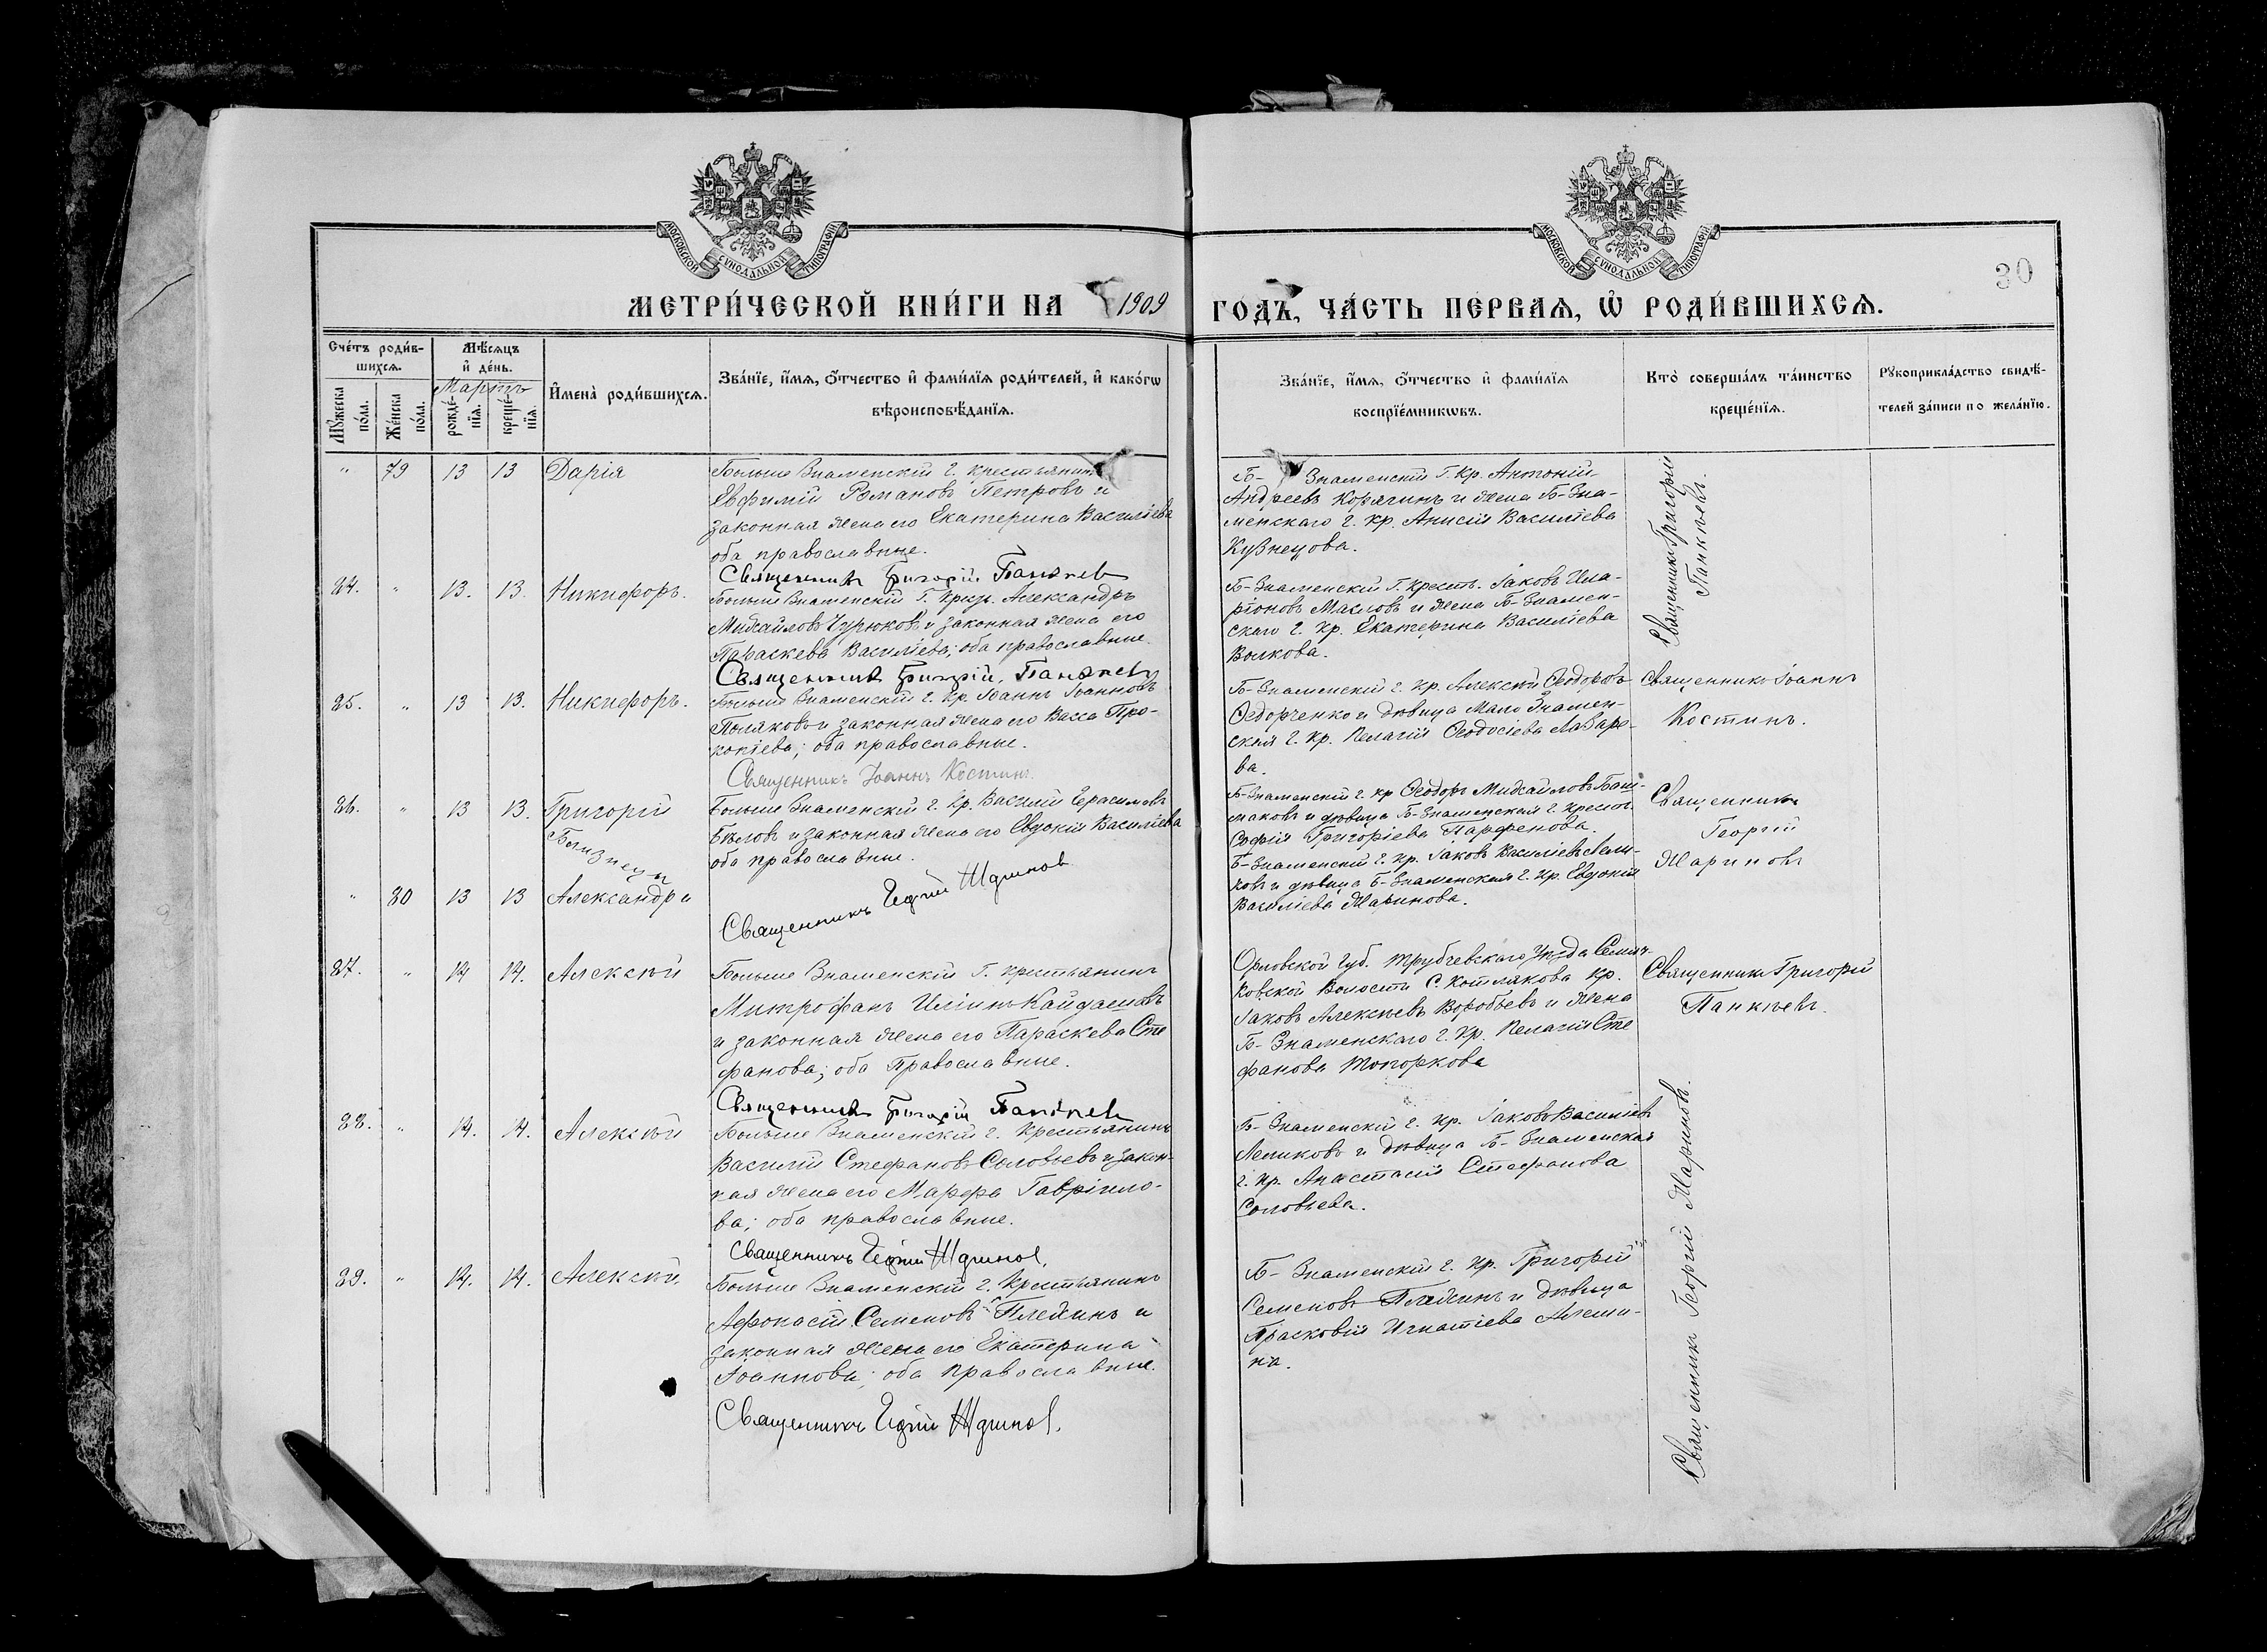 МОСКОВСКОЙ СУНОДАЛЬНОЙ ТИПОГРАФІИ
МОСКОВСКОЙ СУНОДАЛЬНОЙ ТИПОГРАФІИ
30
МЕТРИ́ЧЕСКОЙ КНИ́ГИ НА 1909 ГОДЪ, ЧА́СТЬ ПЕРВАѦ, Ѡ҆ РОДИ́ВШИХСѦ.
Сче́тъ роди́в-
шихсѧ.
Мꙋжеска по́ла.
Же́нска по́ла.
Мѣ́сѧцъ
и҆ де́нь.
Мартъ
рожде́-нїѧ.
креще́-нїѧ.
И҆мена̀ роди́вшихсѧ.
Зва́нїе, и҆́мѧ, ѻ҆́тчество и҆ фами́лїѧ роди́телей, и҆ како́гѡ
вѣроисповѣ́данїѧ.
Зва́нїе, и҆́мѧ, ѻ҆́тчество и҆ фами́лїѧ
воспрїе́мникѡвъ.
Кто̀ соверша́лъ та́инство
креще́нїѧ.
Рꙋкоприкла́дство свидѣ́-
телей за́писи по жела́нїю.
" 79 13 13 Дарія
Больше Знаменскій г. крестьянин
Евфимій Романовъ Петровъ и
законная жена его Екатерина Василіева
оба православные.
Священникъ Григорій Панкѣев
Б- Знаменскій г. кр. Антоній
Андреевъ Корягинъ и жена Б-Зна-
менскаго г. кр. Анисія Василіева
Кузнецова.
Священникъ Григорій
Панкѣевъ.
84. " 13. 13. Никифоръ.
Больше Знаменскій г. кр. Александръ
Михайловъ Чурюковъ и законная жена его
Параскева Василіева; оба православные.
Священникъ Григорій Панкѣев
Б-Знаменскій г. крест. Іаковъ Ила-
ріоновъ Масловъ и жена Б-Знамен-
скаго г. кр. Екатерина Василіева
Волкова.
85. " 13 13. Никифоръ.
Больше Знаменскій г. кр. Іоаннъ Іоанновъ
Поляковъ и законная жена его Васса Про-
копіева; оба православные.
Священникъ Іоаннъ Костинъ.
Б-Знаменскій г. кр. Алексѣй Ѳеодоровъ
Ѳедорченко и дѣвица Мало Знамен-
ская г. кр. Пелагія Ѳеодосіева Лазаре-
ва.
Священникъ Іоаннъ
Костинъ.
86. " 13 13. Григорій
Близнецы
Больше Знаменскій г. кр. Василій Герасимовъ
Бѣловъ и законная жена его Евдокія Василіева
оба православные.
Священникъ Георгій Мариновъ
Б-Знаменскій г. кр. Ѳеодоръ Михайловъ Баш-
маковъ и дѣвица Б-Знаменская г. крест.
Софія Григоріева Парфенова.
Священникъ
Георгій
Мариновъ
" 80 13 13 Александра
Б-Знаменскій г. кр. Іаковъ Василіевъ Лели-
ковъ и дѣвица Б-Знаменская г. кр. Евдокія
Василіева Маринова.
87. " 14 14. Алексѣй
Больше Знаменскій г. крестьянинъ
Митрофанъ Иліинъ Кайдашовъ
и законная жена его Параскева Сте
фанова; оба Православные.
Священникъ Григорій Панкѣев
Орловской губ. Трубчевскаго Уѣзда Семяч-
ковской Волости С. Котлякова кр.
Іаковъ Алексѣевъ Воробьевъ и жена
Б-Знаменскаго г. кр. Пелагія Сте
фанова Топоркова
Священникъ Григорій
Панкѣевъ.
88. " 14. 14. Алексѣй
Больше Знаменскій г. крестьянинъ
Василій Стефановъ Соловьевъ и закон-
ная жена его Марфа Гавріило-
ва; оба православные.
Священникъ Георгій Мариновъ.
Б-Знаменскій г. кр. Іаковъ Василіевъ
Леликовъ и дѣвица Б-Знаменская
г. кр. Анастасія Стефанова
Соловьева.
Священникъ Георгій Мариновъ.
89. " 14. 14. Алексѣй.
Больше Знаменскій г. крестьянинъ
Афонасій Семеновъ Плехинъ и
законная жена его Екатерина
Іоаннова; оба православные.
Священникъ Георгій Мариновъ.
Б-Знаменскій г. кр. Григорій
Семеновъ Плехинъ и дѣвица
Прасковія Игнатіева Алеши-
на.